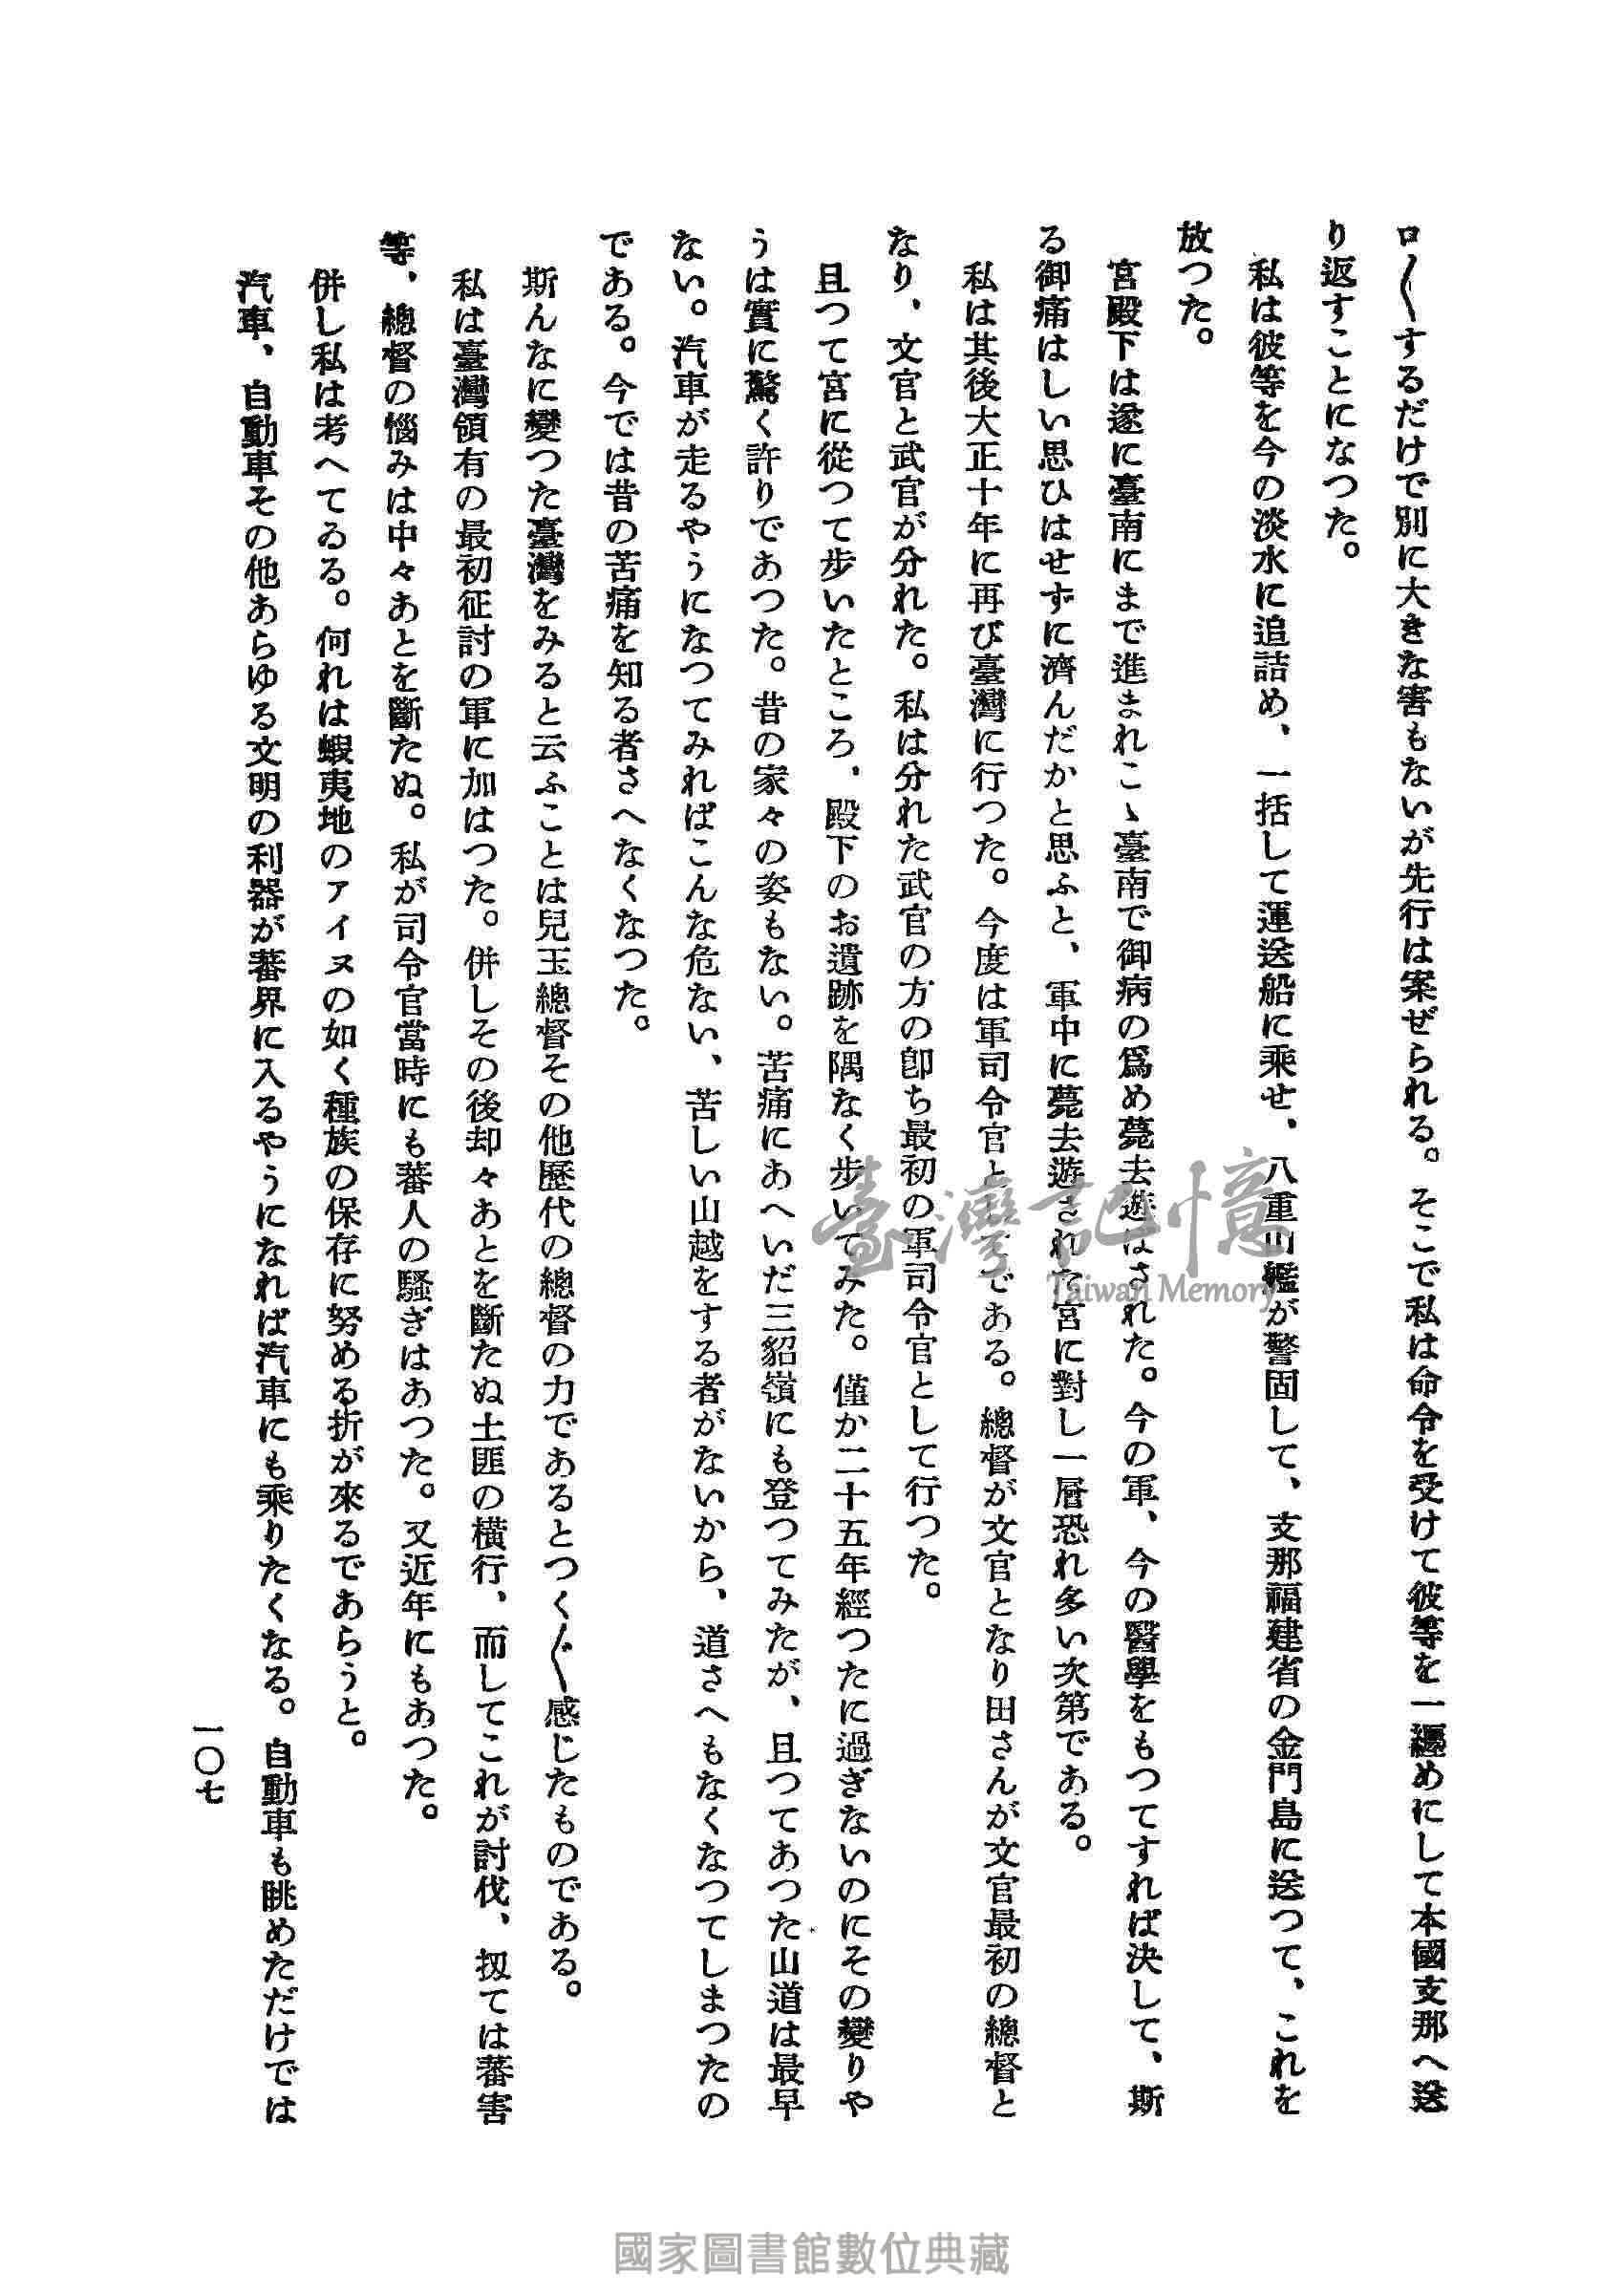 ロ〱するだけで別に大きな害もないが先行は案ぜられる。そこで私は命令を受けて彼等を一纒めにして本國支那へ送
り返すことになつた。
私は彼等を今の淡水に追詰め、一括して運送船に乘せ、八重山艦が警固して、支那福建省の金門島に送つて、これを
放つた。
宮殿下は遂に臺南にまで進まれこゝ臺南で御病の爲め薨去遊ばされた。今の軍、今の醫學をもつてすれば決して、斯
る御痛はしい思ひはせずに濟んだかと思ふと、軍中に薨去遊された宮に對し一層恐れ多い次第である。
私は其後大正十年に再び臺灣に行つた。今度は軍司令官としてである。總督が文官となり田さんが文官最初の總督と
なり、文官と武官が分れた。私は分れた武官の方の卽ち最初の軍司令官として行つた。
且つて宮に從つて步いたところ、殿下のお遺跡を隅なく步いてみた。僅か二十五年經つたに過ぎないのにその變りや
うは實に驚く許りであつた。昔の家々の姿もない。苦痛にあへいだ三貂嶺にも登つてみたが、且つてあつた山道は最早
ない。汽車が走るやうになつてみればこんな危ない、苦しい山越をする者がないから、道さへもなくなつてしまつたの
である。今では昔の苦痛を知る者さへなくなつた。
斯んなに變つた臺灣をみると云ふことは兒玉總督その他歷代の總督の力であるとつく〲感じたものである。
私は臺灣領有の最初征討の軍に加はつた。併しその後却々あとを斷たぬ土匪の橫行、而してこれが討伐、扨ては蕃害
等、總督の惱みは中々あとを斷たぬ。私が司令官當時にも蕃人の騷ぎはあつた。又近年にもあつた。
併し私は考へてゐる。何れは蝦夷地のアイヌの如く種族の保存に努める折が來るであらうと。
汽車、自動車その他あらゆる文明の利器が蕃界に入るやうになれば汽車にも乘りたくなる。自動車も眺めただけでは
一〇七
臺灣記憶
Taiwan Memory
國家圖書館數位典藏